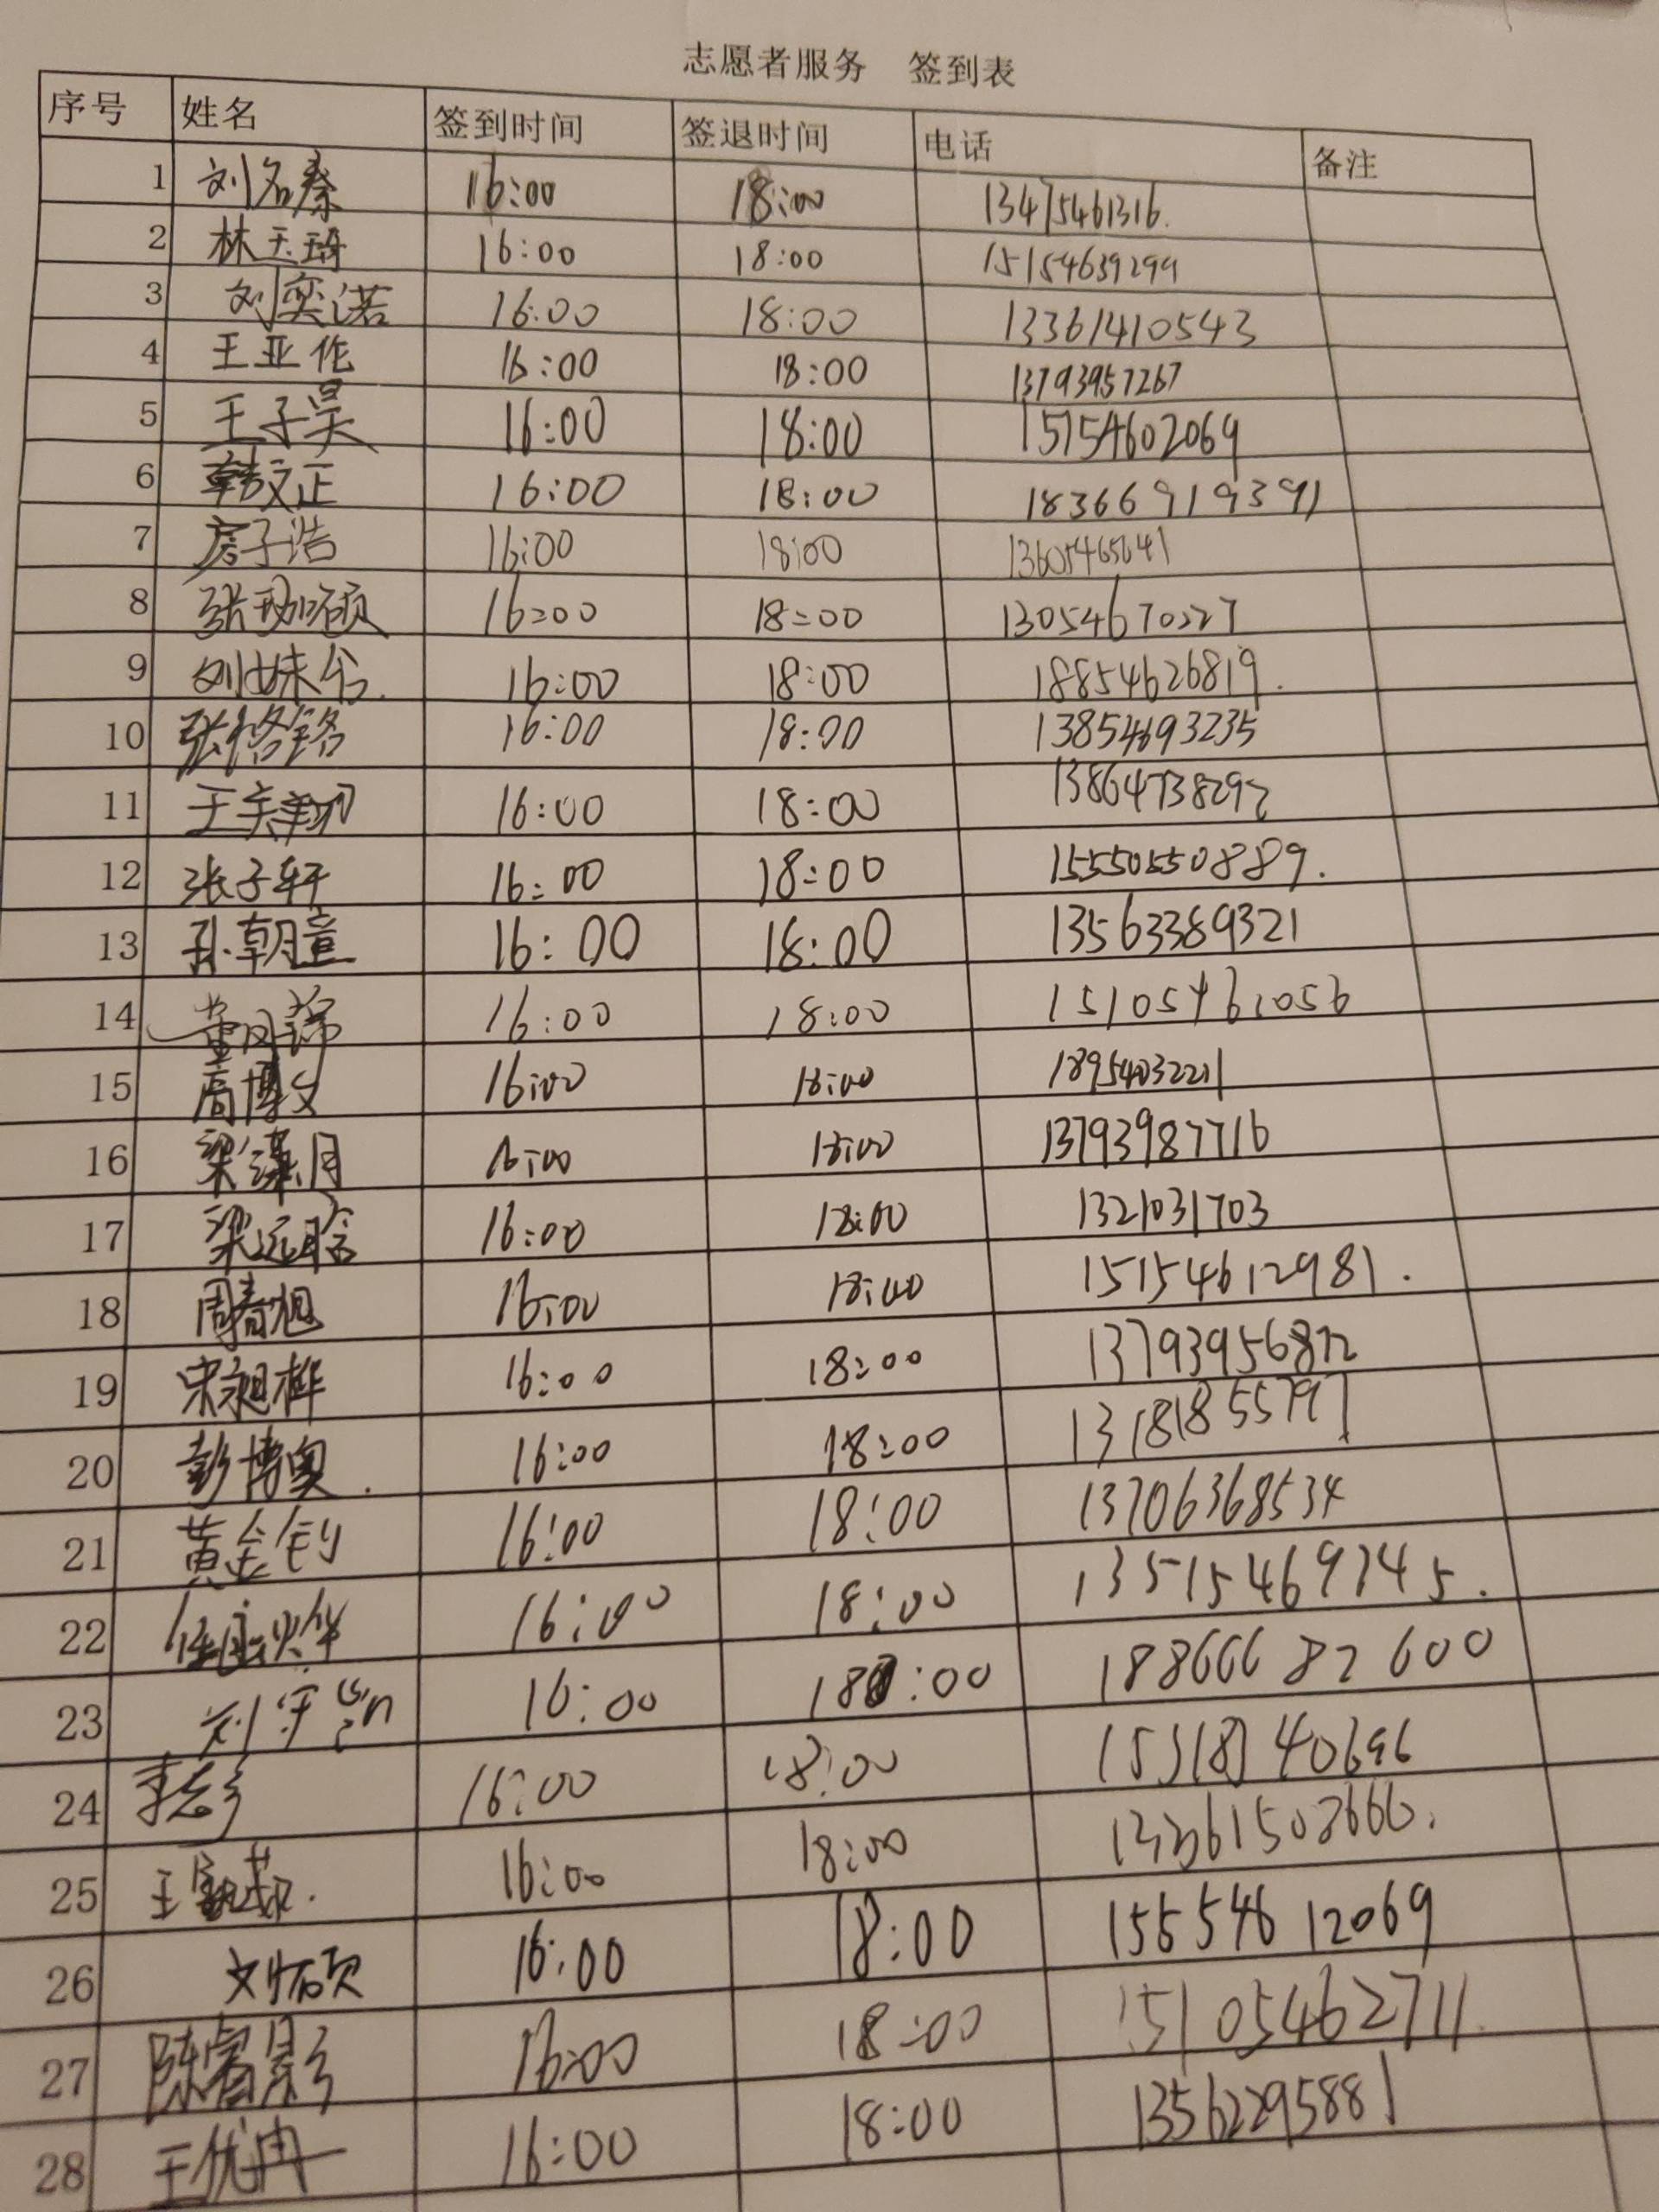 志愿者服务 签到表
序号 姓名 签到时间 签退时间 电话 备注
1 刘名秦 16:00 18:00 13475461316.
2 林玉琦 16:00 18:00 15154639299
3 刘奕诺 16:00 18:00 13361410543
4 王亚伦 16:00 18:00 13793957267
5 王子昊 16:00 18:00 15154602069
6 韩文正 16:00 18:00 18366919391
7 房子浩 16:00 18:00 13605465641
8 16:00 18:00 13054670227
9 刘姝含. 16:00 18:00 18854626819.
10 张恪铭 16:00 18:00 13854693235
11 16:00 18:00 13864738292
12 张子轩 16:00 18:00 15550550889.
13 孙朝萱 16:00 18:00 13563389321
14 16:00 18:00 15105461056
15 高博文 16:00 18:00 18954032211
16 16:00 18:00 13793987716
17 梁远晗 16:00 18:00 1321031703
18 周春旭 16:00 18:00 15154612981.
19 宋昶桦 16:00 18:00 13793956872
20 彭博奥. 16:00 18:00 13181855797
21 黄金钊 16:00 18:00 13706368534
22 16:00 18:00
23 16:00 18:00 18866682600
24 李彦 16:00 18:00
25 16:00 18:00
26 16:00 18:00 15554612069
27 陈睿影 16:00 18:00 15105462711.
28 王优冉 16:00 18:00 13562295881